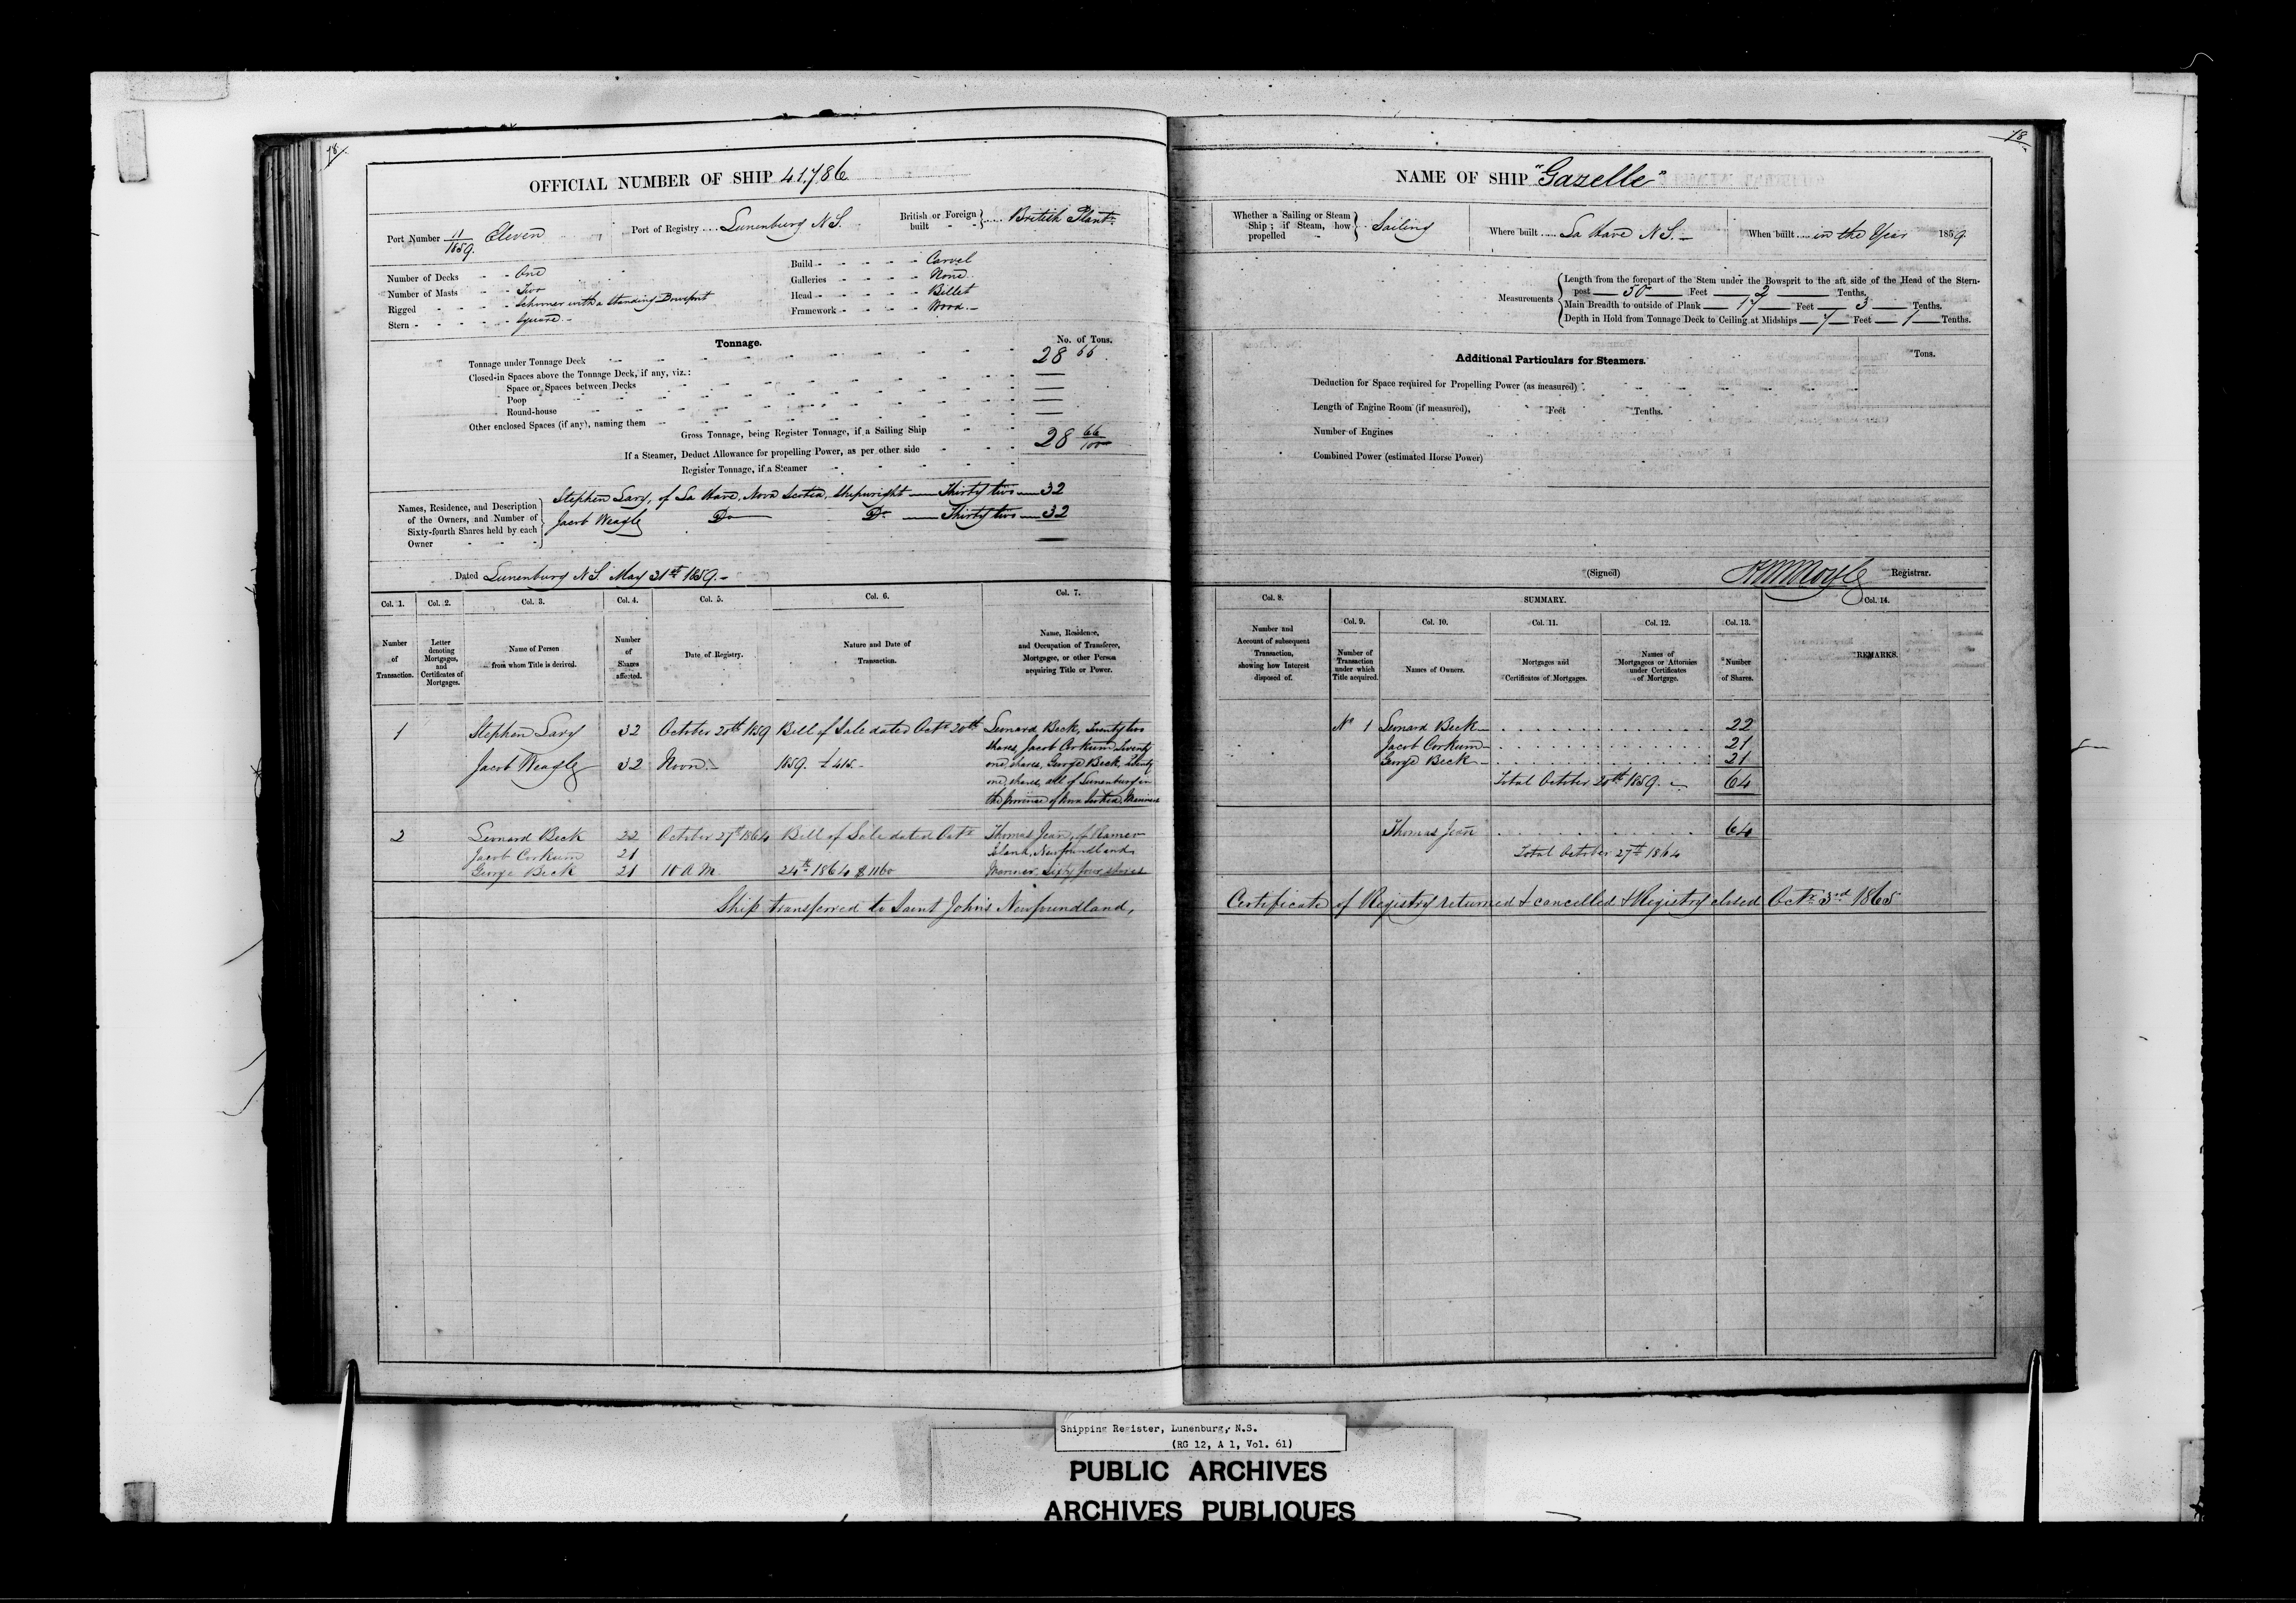 18
OFFICIAL NUMBER OF SHIP 41.786
Port Number 11/1859. Eleven
Port of Registry Lunenburg N.S.
British or Foreign built British Plantn
Number of Decks One
Number of Masts Two
Rigged Schooner with a standing Bowsprit
Stern Square
Build Carvel
Galleries None
Head Billet
Framework Wood
Tonnage.
No. of Tons.
Tonnage under Tonnage Deck 28 66
Closed-in Spaces above the Tonnage Deck, if any, viz.:
Space or Spaces between Decks
Poop
Round-house
Other enclosed Spaces (if any), naming them
Gross Tonnage, being Register Tonnage, if a Sailing Ship 28 66/100
If a Steamer, Deduct Allowance for propelling Power, as per other side
Register Tonnage, if a Steamer
Names, Residence, and Description of the Owners, and Number of Sixty-fourth Shares held by each Owner
Stephen Lary, of La Have, Nova Scotia, Shipwright Thirty two 32
Jacob Weagle Do Do Thirty two 32
Dated Lunenburg N.S. May 31st 1859.
Col. 1. Col. 2. Col. 3. Col. 4. Col. 5. Col. 6. Col. 7.
Number of Transaction.
Letter denoting Mortgages, and Certificates of Mortgages.
Name of Person from whom Title is derived.
Number of Shares affected.
Date of Registry.
Nature and Date of Transaction.
Name, Residence, and Occupation of Transferee, Mortgagee, or other Person acquiring Title or Power.
1 Stephen Lary 32 October 20th 1859 Bill of Sale dated Octr 20th Leonard Beck, Twenty two
shares, Jacob Corkum Twenty
Jacob Weagle 32 Noon. 1859. £415. one shares, George Beck, Twenty
one shares, all of Lunenburg in
the Province of Nova Scotia, Mariners
2 Leonard Beck 22 October 27th 1864 Bill of Sale dated Octr Thomas Jean, of Ramea
Jacob Corkum 21 Island, Newfoundland
George Beck 21 10 A.M. 24th 1864 $1160 Mariner, Sixty four shares
Ship transferred to Saint John's Newfoundland,
18
NAME OF SHIP "Gazelle"
Whether a Sailing or Steam Ship; if Steam, how propelled Sailing
Where built La Have N.S.
When built in the Year 1859
Measurements
Length from the forepart of the Stem under the Bowsprit to the aft side of the Head of the Stern-
post 50 Feet 2 Tenths.
Main Breadth to outside of Plank 17 Feet 3 Tenths.
Depth in Hold from Tonnage Deck to Ceiling at Midships 7 Feet 1 Tenths.
Additional Particulars for Steamers.
Tons.
Deduction for Space required for Propelling Power (as measured)
Length of Engine Room (if measured), Feet Tenths.
Number of Engines
Combined Power (estimated Horse Power)
(Signed) Registrar.
Col. 8. SUMMARY. Col. 14.
Col. 9. Col. 10. Col. 11. Col. 12. Col. 13.
Number and Account of subsequent Transaction, showing how Interest disposed of.
Number of Transaction under which Title acquired.
Names of Owners.
Mortgages and Certificates of Mortgages.
Names of Mortgagees or Attornies under Certificates of Mortgage.
Number of Shares.
REMARKS.
No 1 Leonard Beck 22
Jacob Corkum 21
George Beck 21
Total October 20th 1859. 64
Thomas Jean 64
Total October 27th 1864
Certificate of Registry returned & cancelled & Registry closed Octr 3rd 1865
Shipping Register, Lunenburg, N.S.
(RG 12, A 1, Vol. 61)
PUBLIC ARCHIVES
ARCHIVES PUBLIQUES